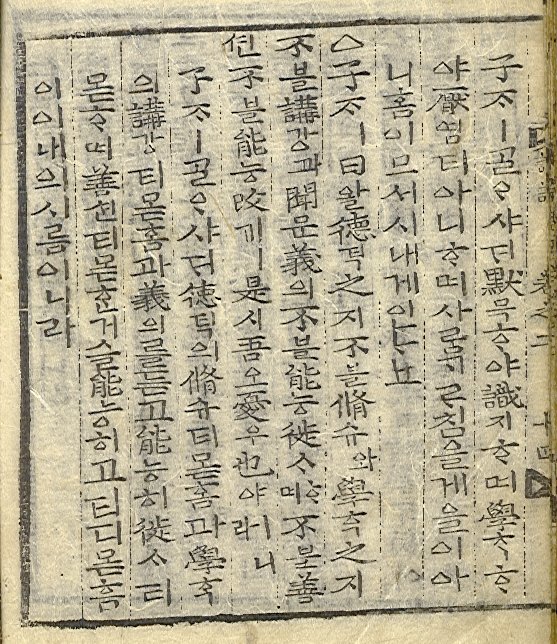 子ᄌᆞㅣ골ᄋᆞ샤ᄃᆡ默믁ᄒᆞ야識지ᄒᆞ며學ᄒᆞᆨᄒᆞ
야厭염티아니ᄒᆞ며사ᄅᆞᆷᄀᆞᄅᆞ침을게을이아
니홈이므서시내게인ᄂᆞ뇨
○子ᄌᆞㅣ曰왈德덕之지不블脩슈와學ᄒᆞᆨ之지
不블講강과聞문義의不블能능徙ᄉᆞᄒᆞ며不블善
션不블能능改ᄀᆡ是시吾오憂우也야ㅣ니라
子ᄌᆞㅣ골ᄋᆞ샤ᄃᆡ德덕의脩슈티몯홈과學ᄒᆞᆨ
의講강티몯홈과義의를듣고能능히徙ᄉᆞ티
몯ᄒᆞ며善션티몯ᄒᆞᆫ거슬能능히고티디몯홈
이이내의시름이니라